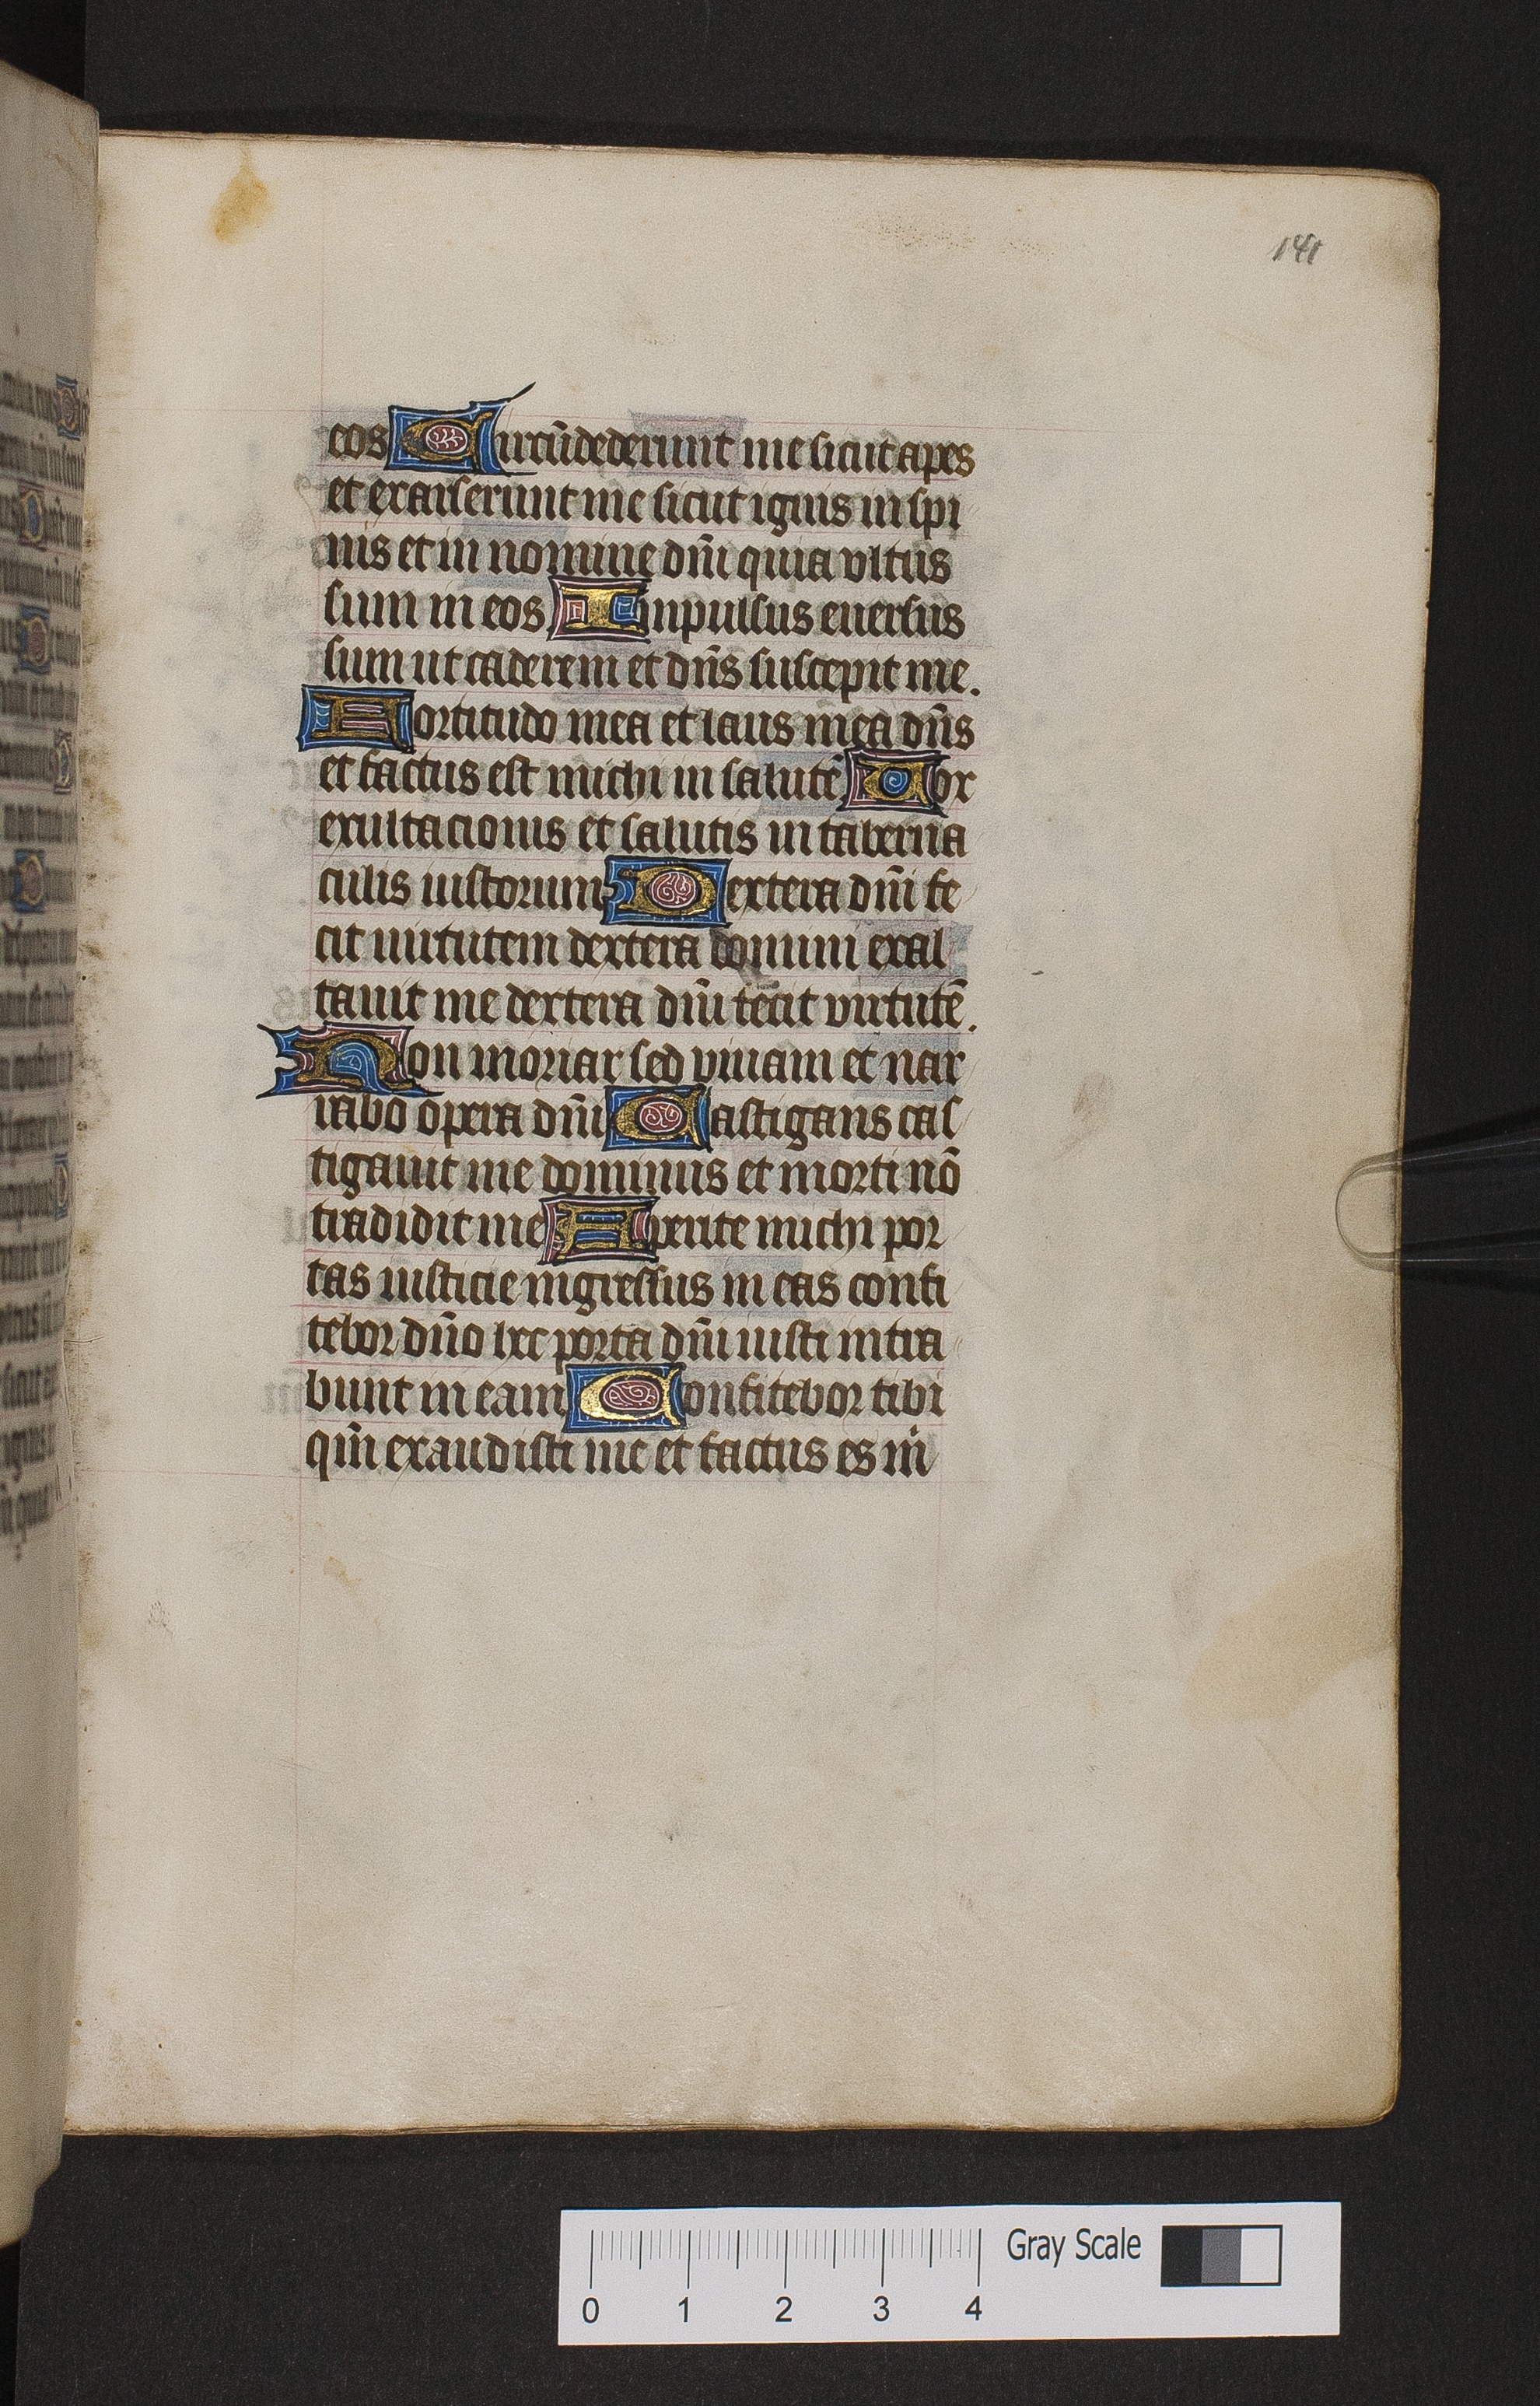 141
eos Circũdederunt me sicut apes
et exarserunt me sicut ignis in spi
nis et in nomine dñi quia vltus
sum in eos Inpulsus euersus
sum ut caderem et dñs suscepit me.
Fortitudo mea et laus mea dñs
et factus est michi in salutẽ Vox
exultacionis et salutis in taberna
culis iustorum Dextera dñi fe
cit uirtutem dextera domini exal
tauit me dextera dñi fecit virtutẽ.
Non moriar sed viuam et nar
rabo opera dñi Castigans cas
tigauit me dominus et morti nõ
tradidit me Aperite michi por
tas iusticie ingressus in eas confi
tebor dño hec porta dñi iusti intra
bunt in eam Confitebor tibi
qm̃ exaudisti me et factus es m̃
Gray Scale
0 1 2 3 4